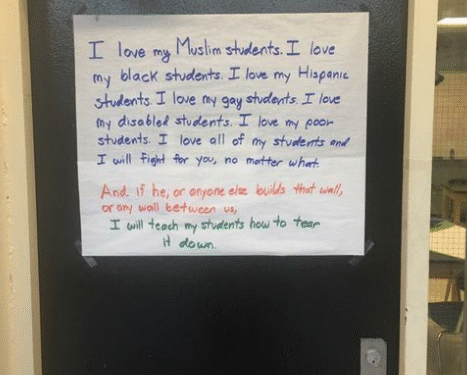 I love my Muslim students. I love
my black students. I love my Hispanic
students. I love my gay students. I love
my disabled students. I love my poor
students. I love all of my students and
I will fight for you, no matter what.
And if he, or anyone else builds that wall,
or any wall between us,
I will teach my students how to tear
it down.